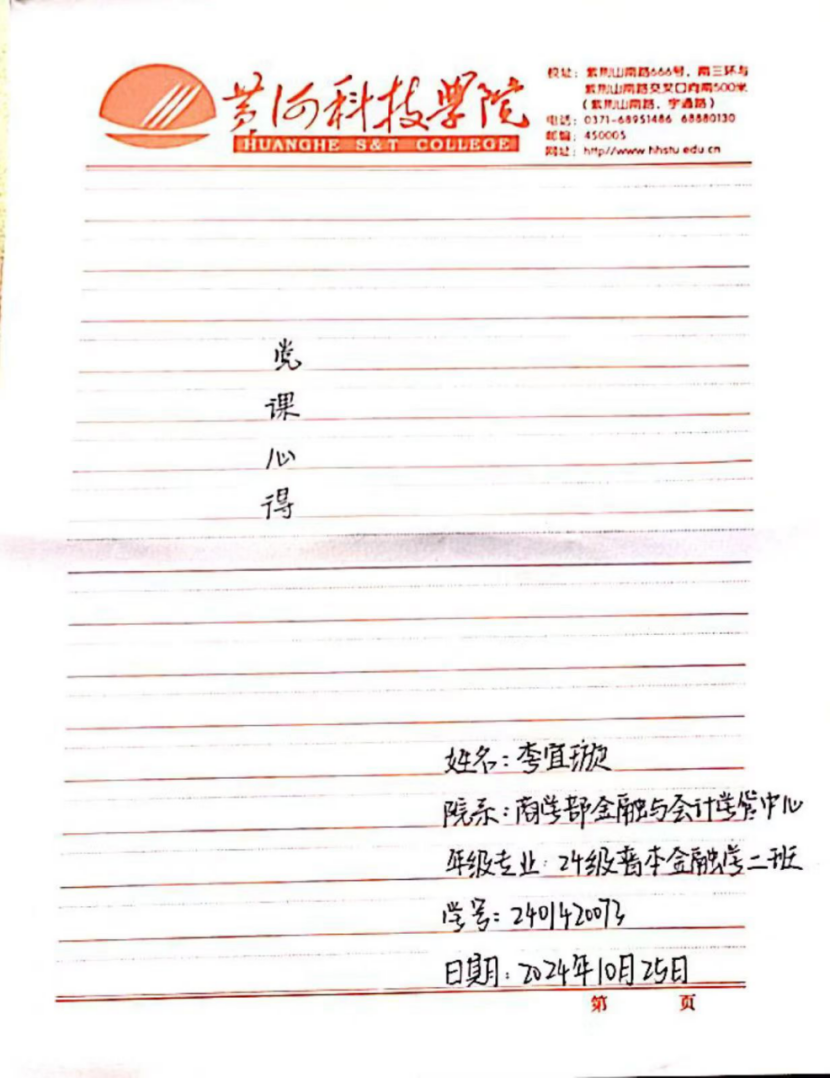 黄河科技学院
HUANGHE S&T COLLEGE
校址：紫荆山南路666号，南三环与
紫荆山南路交叉口向南500米
（紫荆山南路、宇通路）
电话：0371-68951486 68880130
邮编：450005
网址：http//www hhstu edu cn
党
课
心
得
姓名：李宜璇
院系：商学部金融与会计学管中心
年级专业：24级普本金融学二班
学号：2401420073
日期：2024年10月25日
第 页